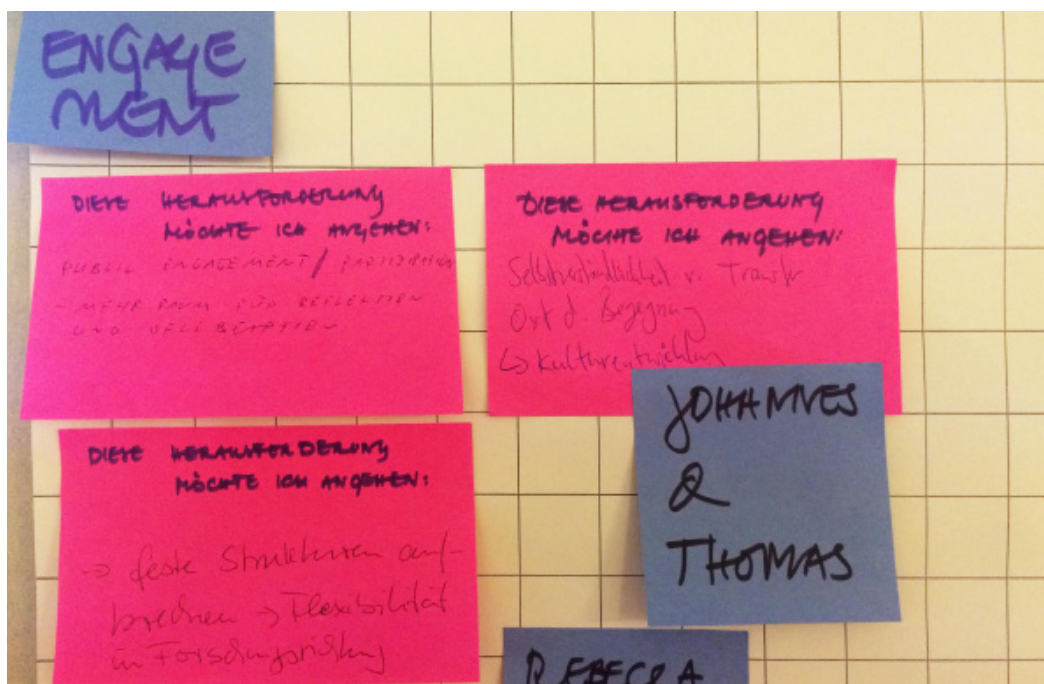 ENGAGE
MENT
DIESE HERAUSFORDERUNG
MÖCHTE ICH ANGEHEN:
PUBLIC ENGAGEMENT / PARTIZIPATION
- MEHR RAUM FÜR REFLEKTION
UND
DIESE HERAUSFORDERUNG
MÖCHTE ICH ANGEHEN:
Selbstverständlichkeit v. Transfer
Ort d. Begegnung
↳ Kulturentwicklung
JOHANNES
&
THOMAS
DIESE HERAUSFORDERUNG
MÖCHTE ICH ANGEHEN:
→ feste Strukturen auf-
brechen → Flexibilität
in Forschungsrichtung
REBECCA